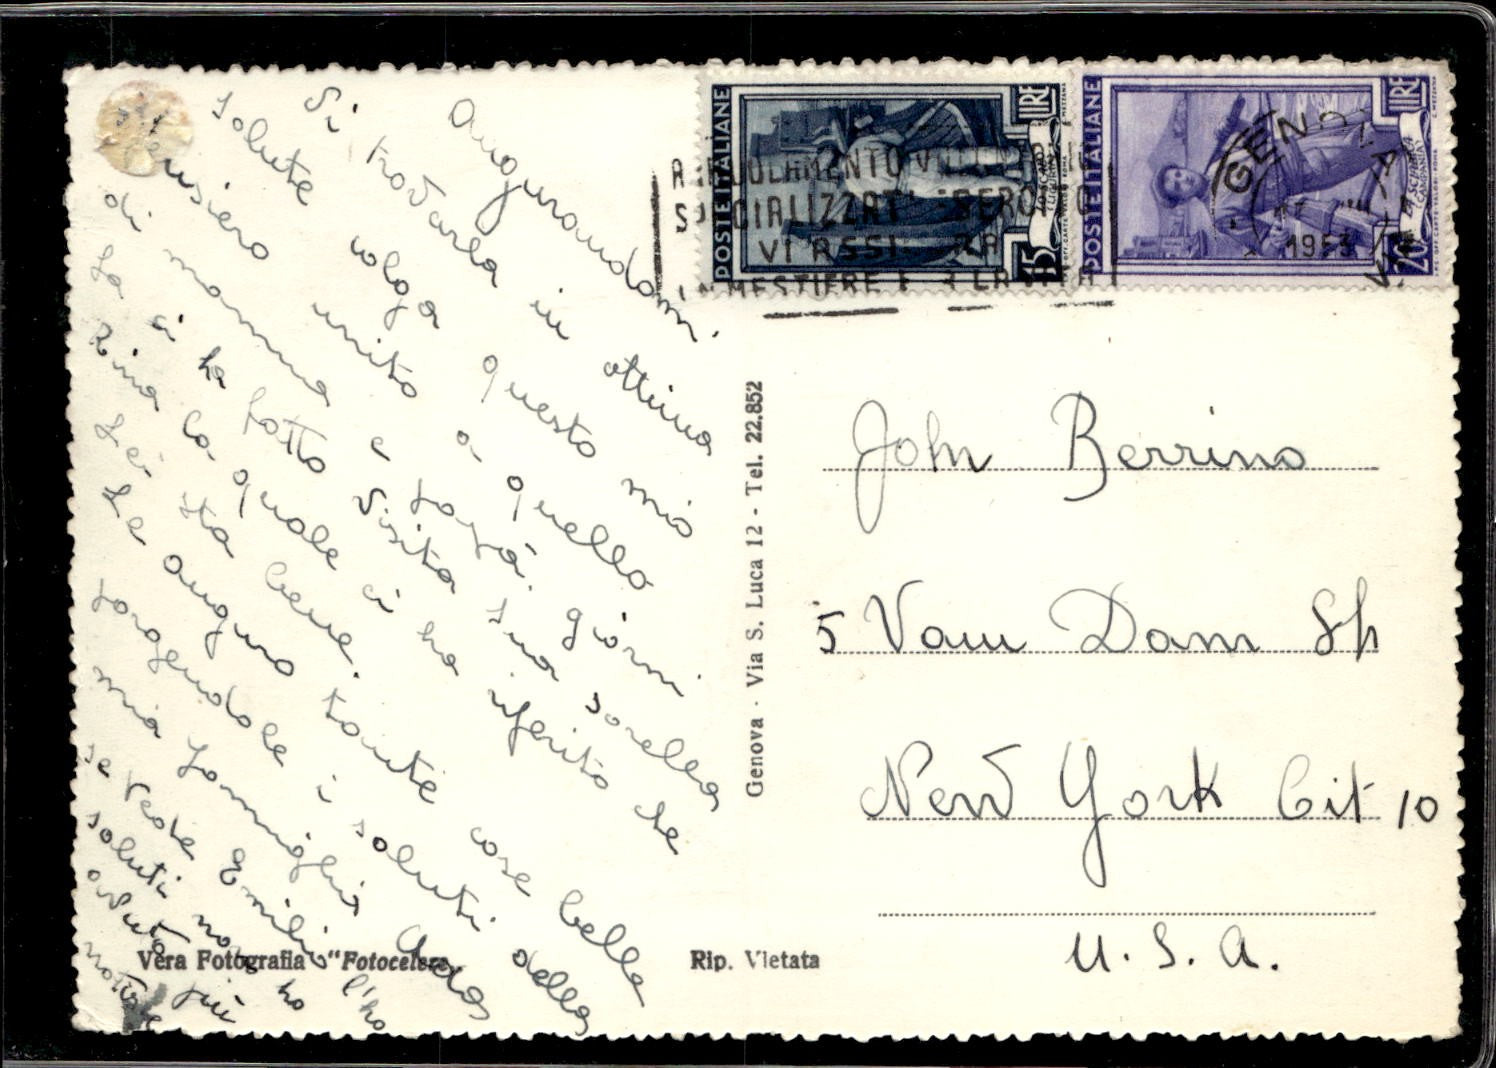 Augurandomi
Si trovarla in ottima
salute volga questo mio
pensiero unito a quello
di mamma e papà. Giorni
fa ci ha fatto visita sua sorella
Rina la quale ci ha riferito che
Lei sta bene.
Le auguro tante cose belle
porgendole i saluti della
mia famiglia
se vede Emilio l'ho
saluti non ho
avuto più
notizie
Vera Fotografia "Fotocelere"
Rip. Vietata
Genova - Via S. Luca 12 - Tel. 22.852
POSTE ITALIANE
LIRE
15
POSTE ITALIANE
LIRE
20
GENOVA
1953
John Berrino
5 Vam Dam St
New York Cit 10
U. S. A.